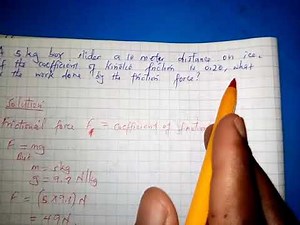 A 5 kg box slides a 10 meter distance on ice.
If the coefficient of kinetic friction is 0.20, what
is the work done by the friction force?
Solution
Frictional force F = coefficient of friction
F = mg
But
m = 5kg
g = 9.8 N/kg
F = (5 × 9.8) N
= 49 N